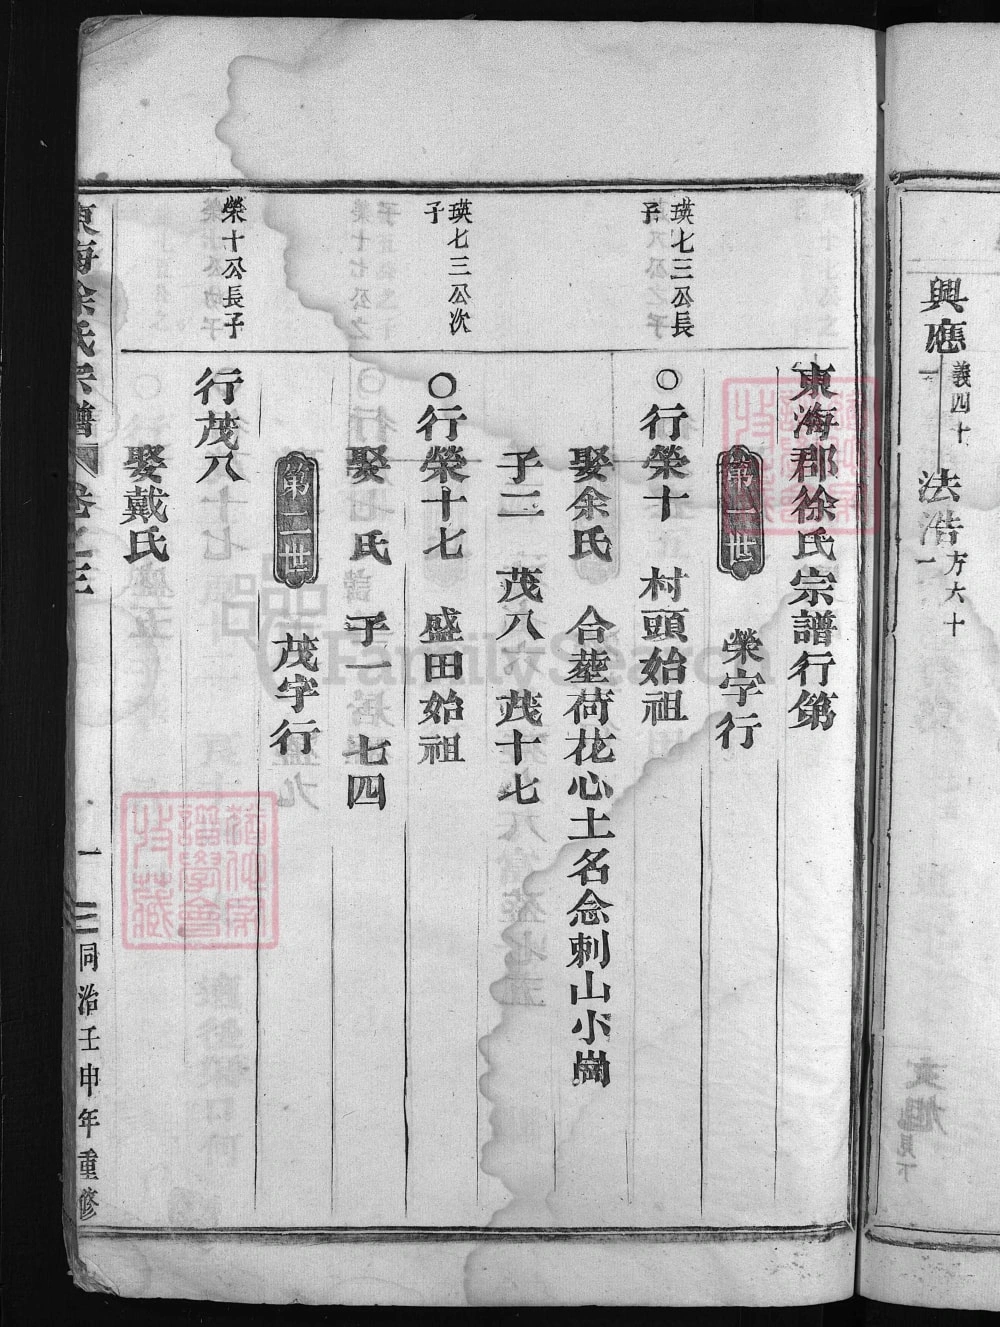 興應一 義四十
法浩一 方六十
見下
東海郡徐氏宗譜行第
第一世
榮字行
瑛七三公長子
○行榮十 村頭始祖
娶余氏 合塟荷花心土名念刺山小崗
子二 茂八六 茂十七
瑛七三公次子
○行榮十七 盛田始祖
娶 氏 子一 七四
第二世
茂字行
榮十公長子
行茂八
娶戴氏
東海徐氏宗譜 卷之三
一
同治壬申年重修
FamilySearch